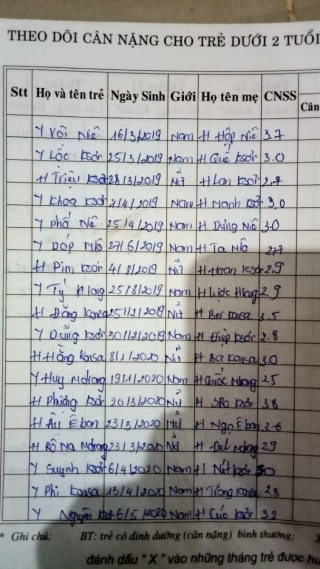 THEO DÕI CÂN NẶNG CHO TRẺ DƯỚI 2 TUỔI
Stt Họ và tên trẻ Ngày Sinh Giới Họ tên mẹ CNSS Cân
Y Vôi Niê 16/3/2019 Nam H Hốp Niê 3.7
Y Lốc Ksơr 25/3/2019 Nam H Quế Ksơr 3.0
H Triệu Ksơr 28/3/2019 Nữ H Lan Ksơr
Y Khoa Ksơr 2/4/2019 Nam H Manh Ksơr 3.0
Y Phố Niê 25/4/2019 Nam H Dung Niê 3.0
Y Dốp Mlô 27/6/2019 Nam H Ta Mlô 2.7
H Pim Ksơr 4/8/2019 Nữ H Hoan Ksơr 2.9
Y Tý Hlong 25/8/2019 Nam H Lước Hlong 2.9
H Đăng Korsa 25/12/2019 Nữ H Korsa 3.5
Y Dũng Ksơr 30/12/2019 Nam H Điệp Ksơr 2.8
H Hồng Korsa 8/1/2020 Nữ H Ba Korsa 3.0
Y Huy Mdrang 19/1/2020 Nam H Quốc Mdrang 2.5
H Phương Ksơr 20/3/2020 Nữ H Ksơr 3.8
H Ban 23/3/2020 Nữ H Ngọ Êban 2.6
H Rô Na Mdrang 23/3/2020 Nữ H Mdrang 2.9
Y Suynh Ksơr 6/4/2020 Nam H Nát Ksơr 3.0
Y Phi Korsa 13/4/2020 Nam H Trông Korsa 2.8
Y Nguyên Ksơr 6/5/2020 Nam H Cúc Ksơr 3.2
* Ghi chú: BT: trẻ có dinh dưỡng (cân nặng) bình thường; S
đánh dấu "X" vào những tháng trẻ được hu